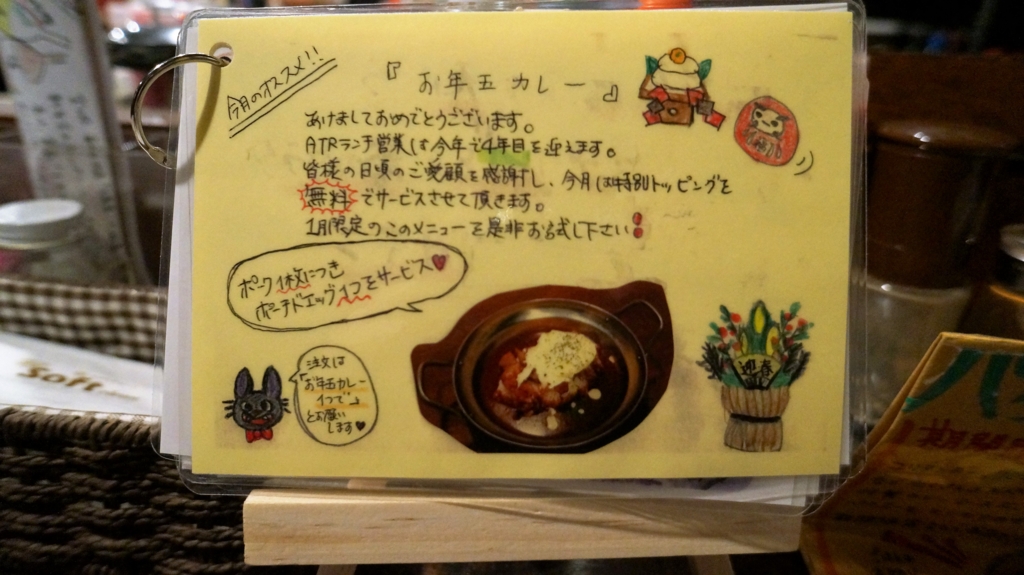 今月のオススメ!!
『お年玉カレー』
あけましておめでとうございます。
ATRランチ営業は今年で4年目を迎えます。
皆様の日頃のご愛顧を感謝し、今月は特別トッピングを
無料でサービスさせて頂きます。
1月限定のこのメニューを是非お試し下さい!!
ポーク1枚につき
ポーチドエッグ1つをサービス♥
注文は
「お年玉カレー
1つで」
とお願い
します♥
迎春
Soft